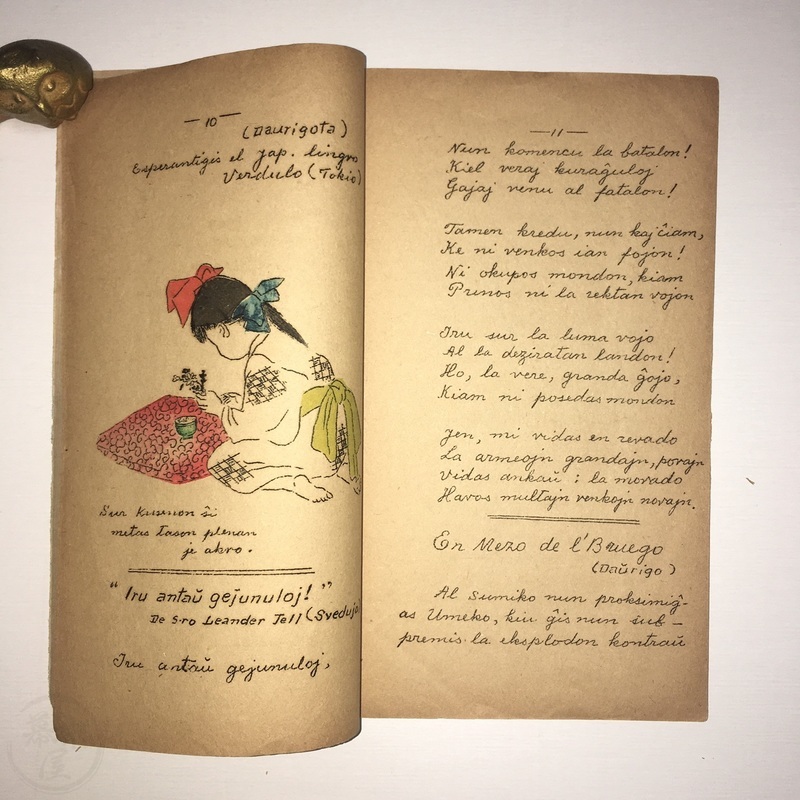 — 10 —
(Daurigota)
Esperantigis el jap. lingvo
Verdulo (Tokio)
Sur kusenon ŝi
metas tason plenan
je akvo.
"Iru antaŭ gejunuloj!"
De S-ro Leander Tell (Svedujo
Iru antaŭ gejunuloj,
— 11 —
Nun komencu la batalon!
Kiel veraj kuraĝuloj
Gajaj venu al fatalon!
Tamen kredu, nun kaj ĉiam,
Ke ni venkos ian fojon!
Ni okupos mondon, kiam
Prenos ni la rektan vojon
Iru sur la luma vojo
Al la deziratan landon!
Ho, la vere, granda ĝojo,
Kiam ni posedas mondon
Jen, mi vidas en revado
La armeojn grandajn,
Vidas ankaŭ: la morado
Havos multajn venkojn novajn.
En Mezo de l'Bruego
(Daŭrigo)
Al Sumiko nun proksimiĝ-
as Umeko, kiu ĝis nun sub-
premis la eksplodon kontraŭ